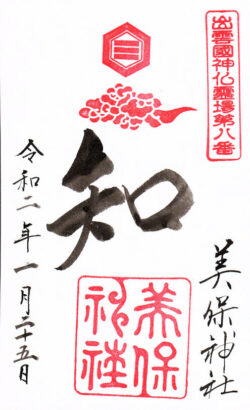 出雲國神仏靈場第八番
三
美保神社
知
美保
神社
令和二年一月二十五日